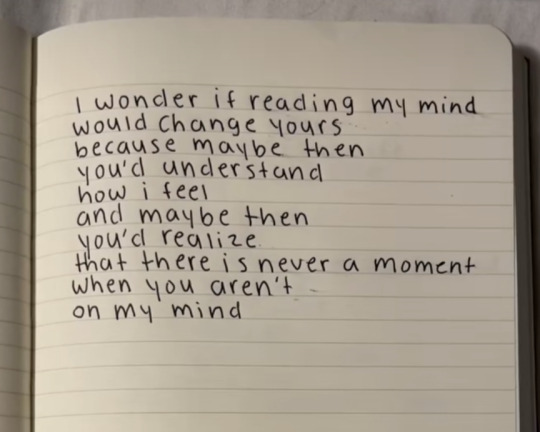 I wonder if reading my mind
would change yours
because maybe then
you'd understand
how i feel
and maybe then
you'd realize
that there is never a moment
when you aren't
on my mind